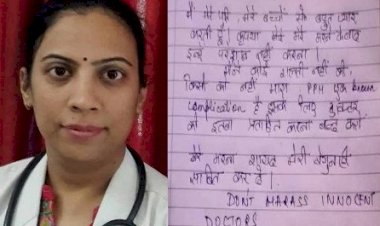 मैं मेरे पति, मेरे बच्चों से बहुत प्यार
करती हूँ। कृपया मेरे मरने के बाद
इन्हें परेशान नहीं करना।
मैंने कोई गलती नहीं की
किसी को नहीं मारा PPH एक known
complication है इसके लिए
को इतना प्रताड़ित करना बन्द करो
मेरा मरना शायद मेरी बेगुनाही
साबित कर दे।
DON'T HARASS INNOCENT
DOCTORS